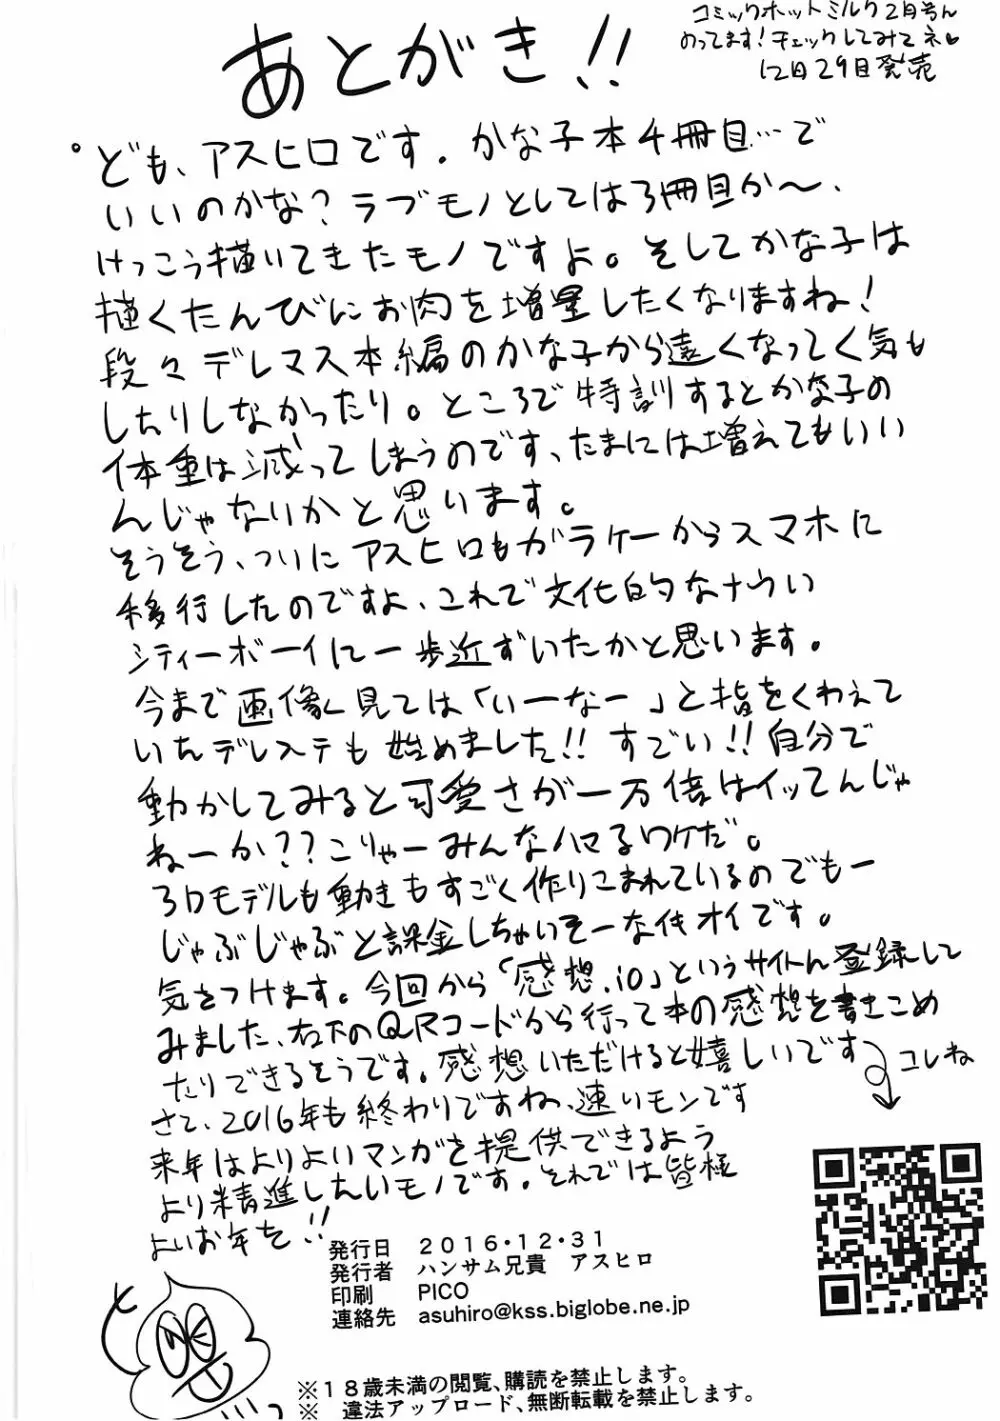 あとがき!!
コミックホットミルク2月号ん
のってます!チェックしてみてネ♥
12日29日発売
ども、アスヒロです。かな子本4冊目…で
いいのかな?ラブモノとしては3冊目か〜、
けっこう描いてきたモノですよ。そしてかな子は
描くたんびにお肉を増量したくなりますね!
段々デレマス本編のかな子から遠くなってく気も
したりしなかったり。ところで特訓するとかな子の
体重は減ってしまうのです、たまには増えてもいい
んじゃないかと思います。
そうそう、ついにアスヒロもガラケーからスマホに
移行したのですよ、これで文化的なナウい
シティーボーイに一歩近ずいたかと思います。
今まで画像く見ては「いーなー」と指をくわえて
いたデレステも始めました!!すごい!!自分で
動かしてみると可愛さが一万倍はイッてんじゃ
ねーか??こりゃーみんなハマるワケだ。
3Dモデルも動きもすごく作りこまれているのでもー
じゃぶじゃぶと課金しちゃいそーなイキオイです。
気をつけます。今回から「感想.io」というサイトん登録して
みました、右下のQRコードから行って本の感想を書きこめ
たりできるそうです。感想いただけると嬉しいです
コレね
さて、2016年も終わりですね、速いモンです
来年はよりよいマンガを提供できるよう
より精進したいモノです。それでは皆様
よいお年を!!
発行日 2016・12・31
発行者 ハンサム兄貴 アスヒロ
印刷 PICO
連絡先 asuhiro@kss.biglobe.ne.jp
※18歳未満の閲覧、購読を禁止します。
※ 違法アップロード、無断転載を禁止します。